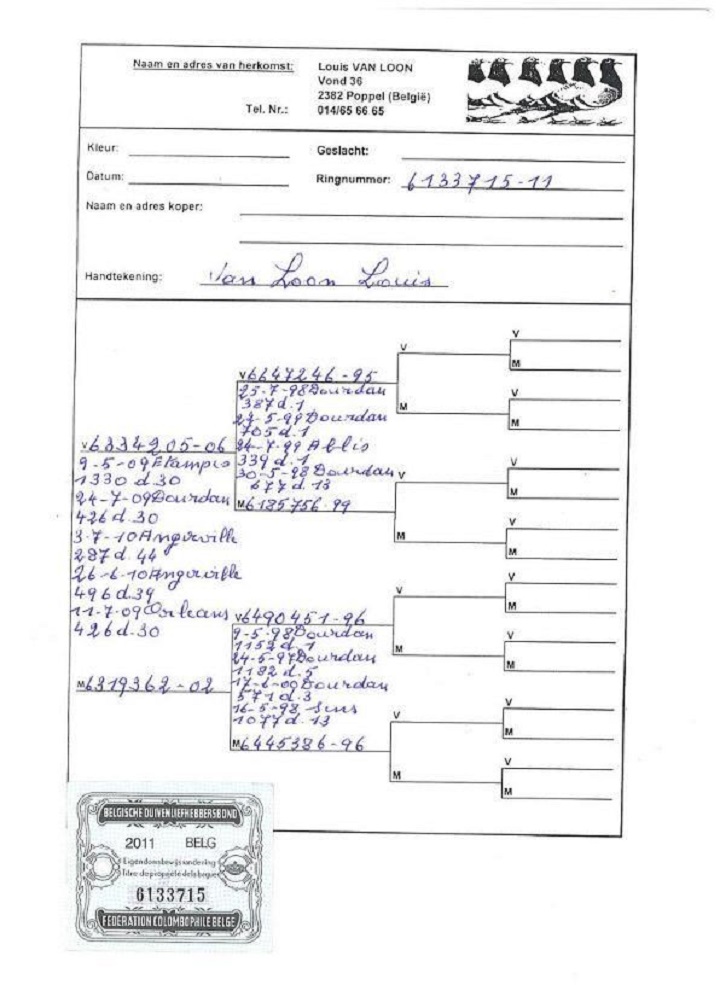 Naam en adres van herkomst: Louis VAN LOON
Vond 36
2382 Poppel (België)
Tel. Nr.: 014/65 66 65
Kleur: Geslacht:
Datum: Ringnummer: 6133715-11
Naam en adres koper:
Handtekening: Van Loon Louis
V
V
M
V 6647246-95
25-7-98 Dourdan
387 d. 1
M
V
M
23-5-99 Dourdan
705 d. 1
V 6334205-06
24-7-99 Ablis
339 d. 1
30-5-98 Dourdan
677 d. 13
M 6185756-99
V
V
M
M
V
M
9-5-09 Etampes
1330 d. 30
24-7-09 Dourdan
426 d. 30
3-7-10 Angerville
287 d. 44
26-6-10 Angerville
496 d. 39
11-7-09 Orleans
426 d. 30
V
V
M
V 6490451-96
9-5-98 Dourdan
1152 d. 1
M
V
M
24-5-97 Dourdan
1192 d. 5
M 6319362-02
17-6-00 Dourdan
571 d. 3
16-5-98 Sens
1077 d. 13
M 6445386-96
V
V
M
M
V
M
BELGISCHE DUIVENLIEFHEBBERSBOND
2011 BELG
Eigendomsbewijs van de ring
6133715
FEDERATION COLOMBOPHILE BELGE